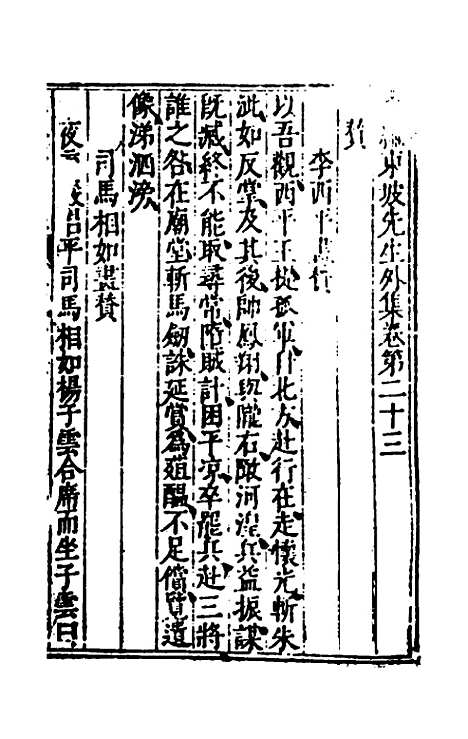 東坡先生外集卷第二十三
李西平畫
以吾觀西平王提孤軍自北方赴行在走懷光斬朱
泚如反掌及其後帥鳳翔與隴右瞰河湟兵益振謀
既臧終不能取尋常墮賊計困平涼卒罷兵赴三將
誰之咎在廟堂斬馬劒誅延賞為菹醢不足償覽遺
像涕泗滂
司馬相如畫贊
夜平司馬相如楊子雲合席而坐子雲曰